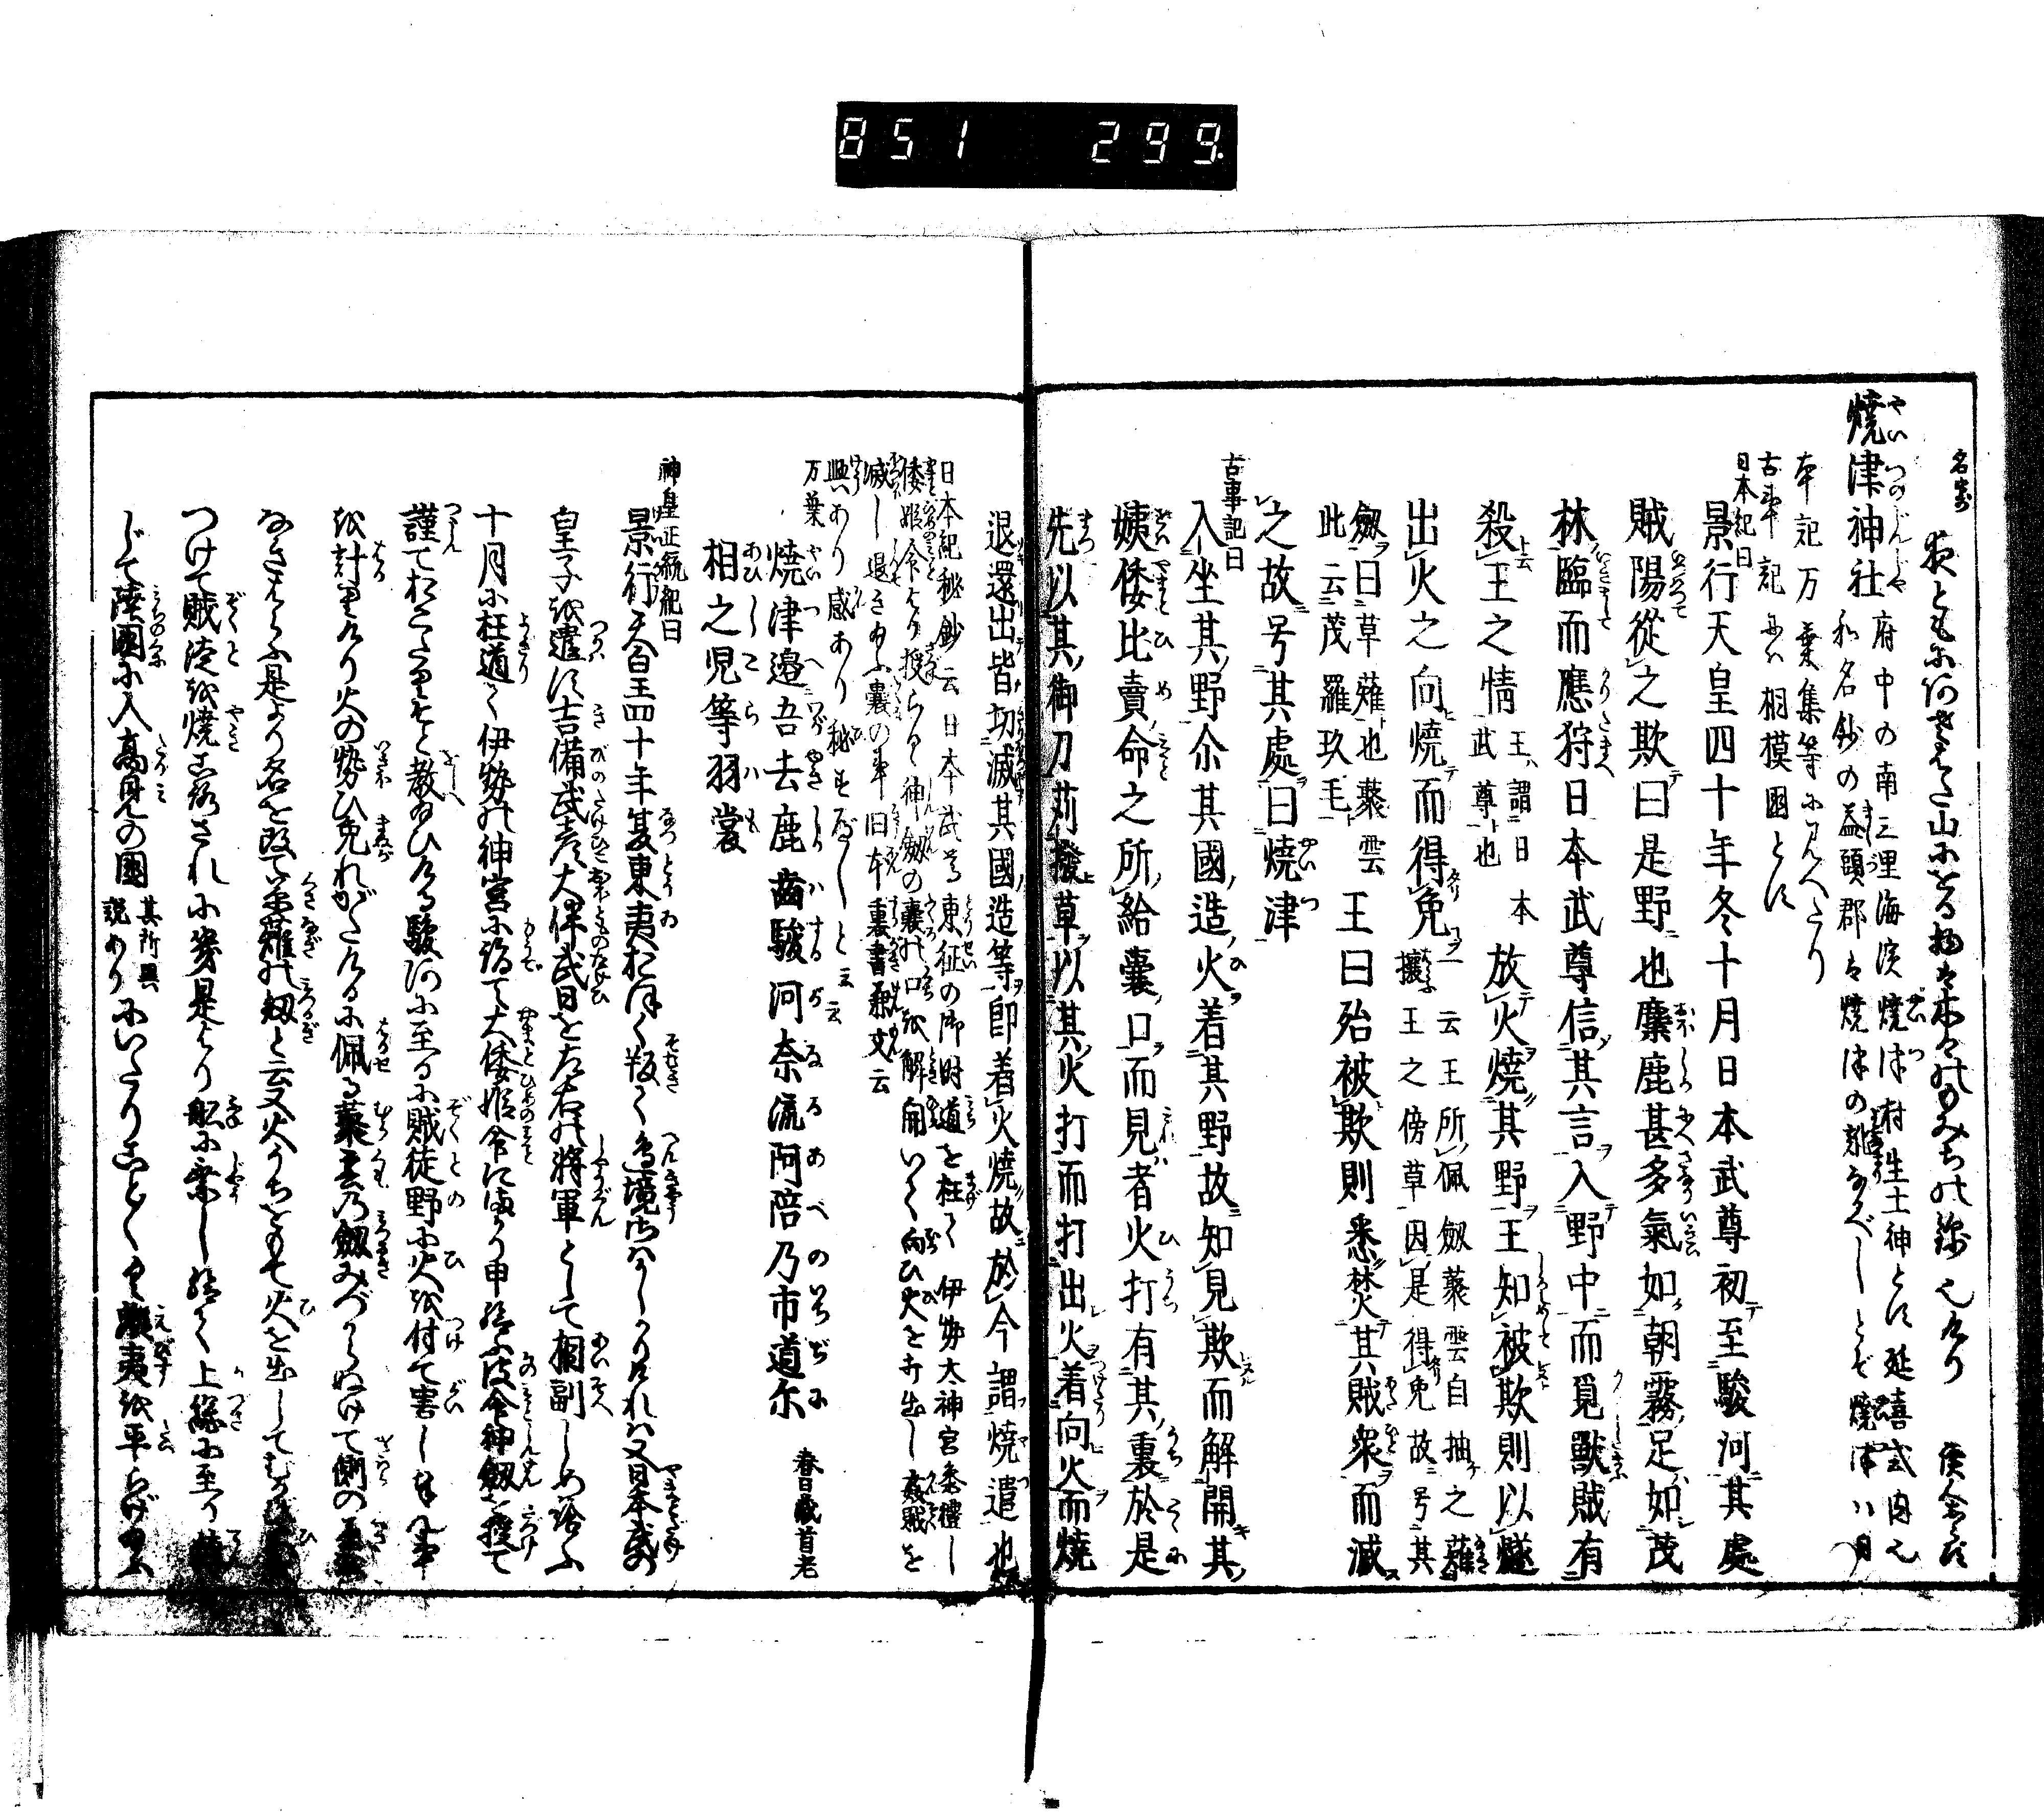 851 299.
名寄
焼津神社
府中の南三里海濱焼津村生土神とす延喜式内也
和名鈔の益頭郡は焼津の訛なるべしとぞ焼津ハ日
本記万葉集等に見へたり
古事記には相模國とす
日本紀曰
景行天皇四十年冬十月日本武尊初至駿河其處
賊陽從之欺曰是野也麋鹿甚多氣如朝霧足如茂
林臨而應狩日本武尊信其言入野中而覓獸賊有
殺王之情
王謂日本
武尊也
放火燒其野王知被欺則以燧
出火之向燒而得免
一云王所佩劔䕺雲自抽之薙
攘王之傍草因是得免故号其
劔曰草薙也䕺雲
此云茂羅玖毛
王曰殆被欺則悉焚其賊衆而滅
之故号其處曰燒津
古事記曰
入坐其野尒其國造火着其野故知見欺而解開其
姨倭比賣命之所給嚢口而見者火打有其裏於是
先以其御刀苅撥草以其火打而打出火着向火而燒
退還出皆切滅其國造等即着火燒故於今謂燒遣也
日本紀秘鈔云日本武尊東征の御時道を枉て伊勢大神宮参禮し
倭姫命より授らる神劔の嚢の口を解開いて向ひ火を打出し姦賊を
滅し退き給ふ嚢の事旧本裏書
興あり感あり秘すべしと云云
万葉
燒津邉吾去鹿齒駿河奈流阿陪乃市道尓
相之児等羽裳
春日蔵首老
神皇正統紀曰
景行天皇四十年夏東夷おほく叛て邉境さはがしかりければ又日本武の
皇子を遣す吉備武彦大伴武日を左右の將軍として相副しめ給ふ
十月に枉道て伊勢の神宮に詣て大倭姫命にまかり申給ふ彼命神劔を授て
謹ておこたりそと教給ひける駿河に至るに賊徒野に火を付て害し奉ん事
を計りけり火の勢ひ免れがたけるに佩る䕺雲の劔みづからぬけて側の草を
なぎはらふ是より名を改て草薙の劔と云又火うちをもて火を出してむかひ火
つけて賊徒を焼ころされにき是より船に乗し給て上総に至り
じて陸奥國に入高見の國
其所異
説あり
にいたりことごとく蝦夷を平らげ給ふ